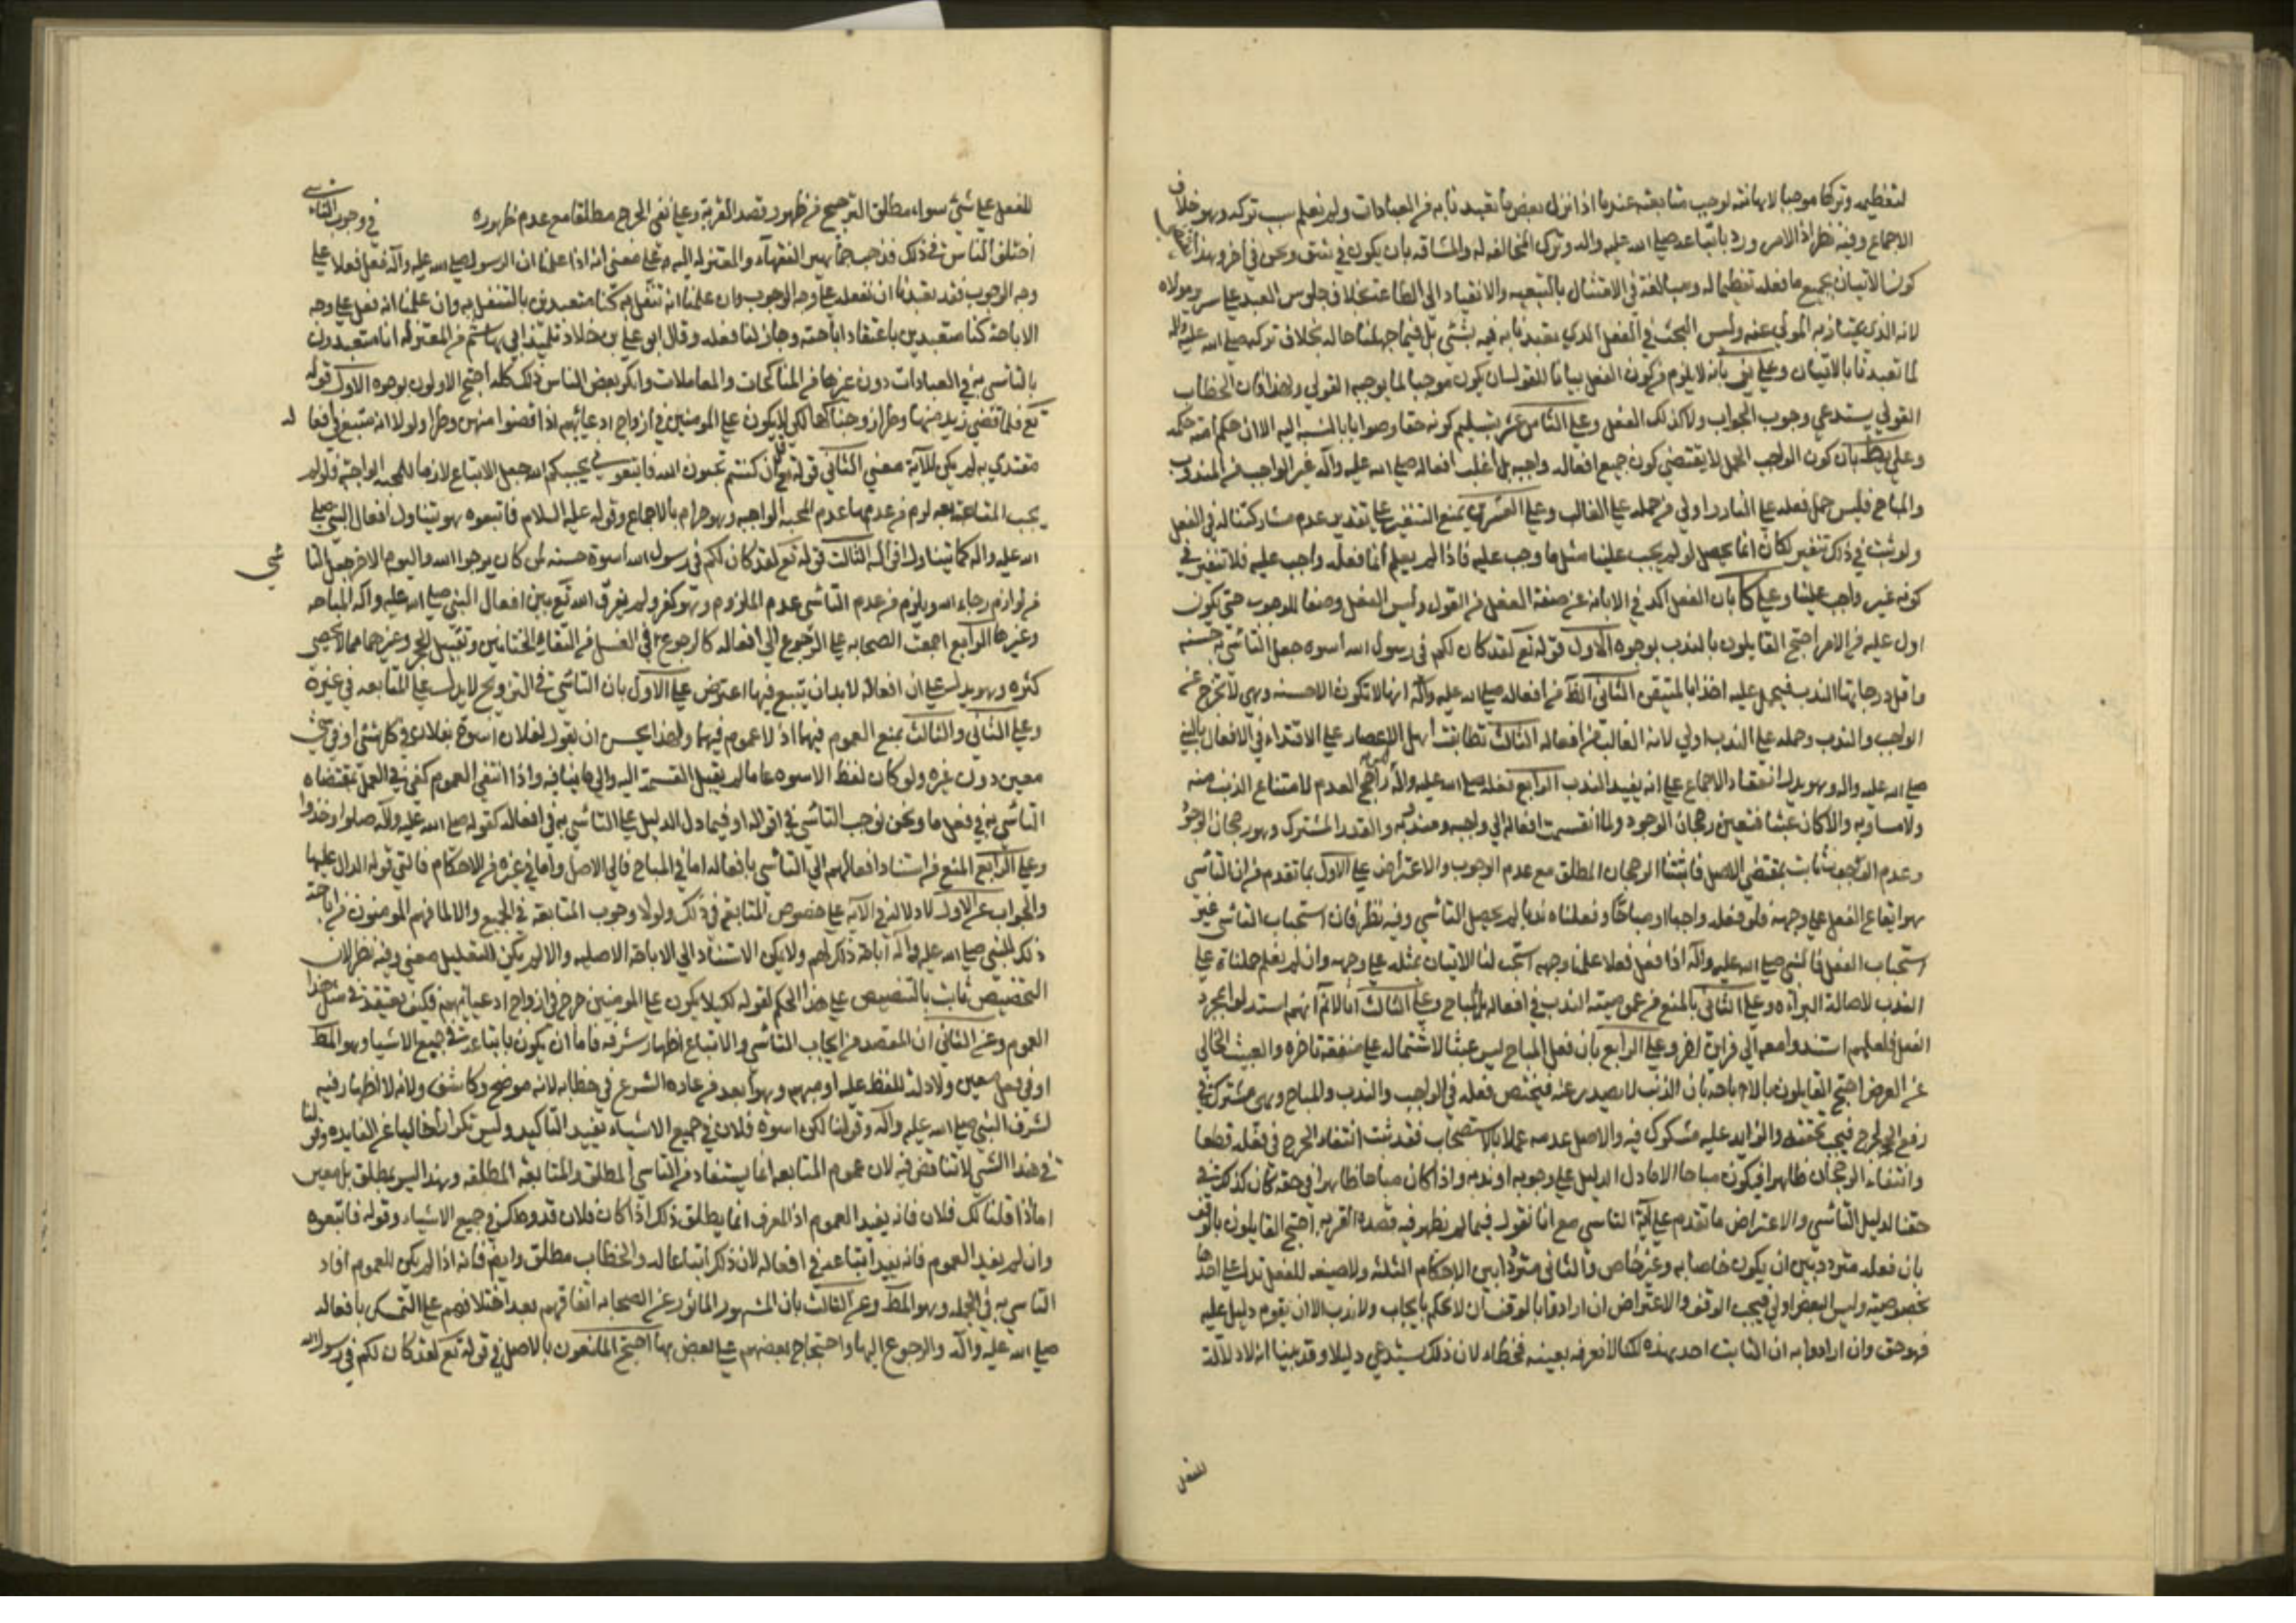 لتعظيمه وتركها موجبا لاهانته لوجب متابعته عندنا اذا نزل بعض ما تعبدنا به من العبادات ولم نعلم سبب تركه وهو خلاف
الاجماع وفيه نظر اذ الامر ورد باتباعه صلى الله عليه واله وترك المخالفه له والمشاقه بان يكون في شق ونحن في آخر وبهذا
كون الاتيان بجميع ما فعله تعظيما له ومبالغة في الامتثال بالتبعيه والانقياد الى الطاعة بخلاف جلوس العبد على سرير مولاه
لانه الذي يمتاز به المولى عنه وليس البحث في الفعل الذي تعبدنا به فيه بشئ بل فيما جهلنا حاله بخلاف تركه صلى الله عليه واله
لما تعبدنا بالاتيان وعلى بانه لا يلزم من كون الفعل بيانا للقول ان يكون موجبا لما يوجبه القولي ولهذا فان الخطاب
القولي يستدعي وجوب الجواب ولا كذلك الفعل وعلى الثامن عشر بتسليم كونه حقا وصوابا بالنسبة اليه الا ان حكم امته حكمه
وعلى بان كون الواجب اكمل لا يقتضي كون جميع افعاله واجبه بل اغلب افعاله صلى الله عليه واله غير الواجب من المندوب
والمباح فليس حمل فعله على النادر اولى من حمله على الغالب وعلى العشرين بمنع التنفير على تقدير عدم مشاركتنا له في الفعل
ولو ثبت في ذلك تنفير لكان انما يحصل لو لم يجب علينا مثل ما وجب عليه فاذا لم يعلم ان ما فعله واجب عليه فلا تنفير في
كونه غير واجب علينا وعلى كا بان الفعل اكد في الابانة عن صفة الفعل من القول وليس الفعل وصفا للوجوب حتى يكون
اول عليه من الامر احتج القايلون بالندب بوجوه الاول قوله تع لقد كان لكم في رسول الله اسوه جعل التاسي به حسنه
واقل درجاتها الندب فيحمل عليه اخذا بالمتيقن الثاني الظ من افعاله صلى الله عليه واله انها لا تكون الا حسنه وهي لا تخرج عن
الواجب والندب وحمله على الندب اولى لانه الغالب من افعاله الثالث تطابقت اهل الاعصار على الاقتداء في الافعال بالنبي
صلى الله عليه واله وهو يدل انعقاد الاجماع على انه يفيد الندب الرابع فعله صلى الله عليه واله راجح العدم لامتناع الذنب منه
ولا مساويه والا كان عبثا فتعين رجحان الوجود ولما انقسمت افعاله الى واجبه ومندوبه والقدر المشترك وهو رجحان الوجود
وعدم الوجوب ثابت بمقتضى الاصل فاثبتنا الرجحان المطلق مع عدم الوجوب والاعتراض على الاول بما تقدم من ان التاسي
هو ايقاع الفعل على وجهه فلو فعله واجبا او مباحا وفعلناه ندبا لم يحصل التاسي وفيه نظر فان استحباب التاسي غير
استحباب الفعل فالنبي صلى الله عليه واله اذا فعل فعلا علمنا وجهه استحب لنا الاتيان بمثله على وجهه وان لم نعلم حملناه على
الندب لاصالة البراءه وعلى الثاني بالمنع من عموميته الندب في افعاله بل المباح وعلى الثالث انا لا نم انهم استدلوا بمجرد
الفعل فلعلهم استندوا معه الى قراين اخر وعلى الرابع بان فعل المباح ليس عبثا لاشتماله على منفعة ناجزه والعبث الخالي
عن الغرض احتج القايلون بالاباحه بان الذنب لا يصدر عنه فيختص فعله في الواجب والندب والمباح وهي مشتركة في
رفع الحرج فيجب تحققه والزايد عليه مشكوك فيه والاصل عدمه عملا بالاستصحاب فقد ثبت انتفاء الحرج في فعله قطعا
وانتفاء الرجحان ظاهرا فيكون مباحا الا ما دل الدليل على وجوبه او ندبه واذا كان مباحا ظاهرا في حقه كان كذلك في
حقنا لدليل التاسي والاعتراض ما تقدم على آية التاسي مع انا نقوله فيما لم نظهر فيه قصده القربه احتج القايلون بالوقف
بان فعله متردد بين ان يكون خاصا به وغير خاص والثاني متردد بين الاحكام الثلثه ولا صيغه للفعل تدل على احدها
بخصوصيته وليس البعض اولى فيجب الوقف والاعتراض ان ارادوا بالوقف ان لا نحكم بايجاب ولا ندب الا ان يقوم دليل عليه
فهو حق وان ارادوا به ان الثابت احد هذه لكنا لا نعرفه بعينه فخطاء لان ذلك يستدعي دليلا وقد بينا انه لا دلالة
للفعل
للفعل على شئ سواء مطلق الترجيح من ظهور قصد القربة وعلى نفي الحرج مطلقا مع عدم ظهوره في وجوب التاسي
اختلف الناس في ذلك فذهب جماهير الفقهاء والمعتزله اليه على معنى انه اذا علمنا ان الرسول صلى الله عليه واله فعل فعلا على
وجه الوجوب فقد تعبدنا ان نفعله على وجه الوجوب وان علمنا انه تنفل به كنا متعبدين بالتنفل به وان علمنا انه فعل على وجه
الاباحة كنا متعبدين باعتقاد اباحته وجاز لنا فعله وقال ابو علي بن خلاد تلميذ ابي هاشم من المعتزله انا متعبدون
بالتاسي به في العبادات دون غيرها من المناكحات والمعاملات وانكر بعض الناس ذلك كله احتج الاولون بوجوه الاول قوله
تع فلما قضى زيد منها وطرا زوجناكها لكي لا يكون على المومنين في ازواج ادعيائهم اذا قضوا منهن وطرا ولولا انه متبع في افعاله
مقتدى به لم يكن للآية معنى الثاني قوله تع ان كنتم تحبون الله فاتبعوني يحببكم الله جعل الاتباع لازما للمحبه الواجبة فلو لم
يجب المتابعة له لزم من عدمها عدم المحبه الواجبه وهو حرام بالاجماع وقوله عليه السلام فاتبعوه هو يتناول افعال النبي صلى
الله عليه واله كما يتناول اقواله الثالث قوله تع لقد كان لكم في رسول الله اسوة حسنه لمن كان يرجوا الله واليوم الاخر جعل التاسي
من لوازم رجاء الله ويلزم من عدم التاسي عدم الملزوم وهو كفر ولم يفرق الله تع بين افعال النبي صلى الله عليه واله المباحه
وغيرها الرابع اجمعت الصحابه على الرجوع الى افعاله كالرجوع في الغسل من التقاء الختانين وتقبيل الحجر وغيرهما مما لا يحصى
كثره وهو يدل على ان افعاله لا بد ان يتبع فيها اعترض على الاول بان التاسي في التزويج لا يدل على المتابعه في غيره
وعلى الثاني والثالث بمنع العموم فيهما اذ لا عموم فيهما ولهذا يحسن ان يقول لفلان اسوة بفلان في كل شئ او في شئ
معين دون غيره ولو كان لفظ الاسوه عاما لم يقبل القسمة اليه والى ما ينافيه واذا انتفى العموم كفى في العمل بمقتضاه
التاسي به في فعل ما ونحن نوجب التاسي في اقواله او فيما دل الدليل على التاسي به في افعاله كقوله صلى الله عليه واله صلوا وخذوا
وعلى الرابع المنع من استناد افعالهم الى التاسي بافعاله اما في المباح فالى الاصل واما في غيره من الاحكام فالى قوله الدال عليها
والجواب عن الاول لا دلالة في الآية على خصوص المتابعة في ذلك ولولا وجوب المتابعة في الجميع والا لما فهم المومنون من اباحة
ذلك للنبي صلى الله عليه واله اباحة ذلك لهم ولا يمكن الاستناد الى الاباحة الاصليه والا لم يكن للتعليل معنى وفيه نظر لان
التخصيص ثابت بالتنصيص على هذا الحكم لقوله لكيلا يكون على المومنين حرج في ازواج ادعيائهم فكيف يعتقد في مثل هذا
العموم وعن الثاني ان المقصد من ايجاب التاسي والاتباع اظهار شرفه فاما ان يكون باتباعه في جميع الاشياء وهو المط
او في فعل معين ولا دلالة للفظ عليه او مبهم وهو ابعد من عاده الشرع في خطابه لانه موضح وكاشف ولانه لا اظهار فيه
لشرف النبي صلى الله عليه واله وقولنا لك اسوة فلان في جميع الاشياء يفيد التاكيد وليس تكرارا خاليا عن الفايده وقولنا
في هذا الشئ لا تناقض فيه لان عموم المتابعه انما يستفاد من التاسي المطلق والمتابعة المطلقه وهذا ليس بمطلق بل معين
اما اذا قلنا لك فلان فانه يفيد العموم اذ العرف انما يطلق ذلك اذا كان فلان قدوه لك في جميع الاشياء وقوله فاتبعوه
وان لم يفيد العموم فانه يفيد اتباعه في افعاله لان ذكر اتباعا له والخطاب مطلق وايضا فانه اذا لم يكن للعموم افاد
التاسي به في الجمله وهو المط وعن الثالث بان المشهور الماثور عن الصحابه اتفاقهم بعد اختلافهم على التمسك بافعاله
صلى الله عليه واله والرجوع اليها واحتجاج بعضهم على بعض بها احتج المانعون بالاصل في قوله تع لقد كان لكم في رسول الله